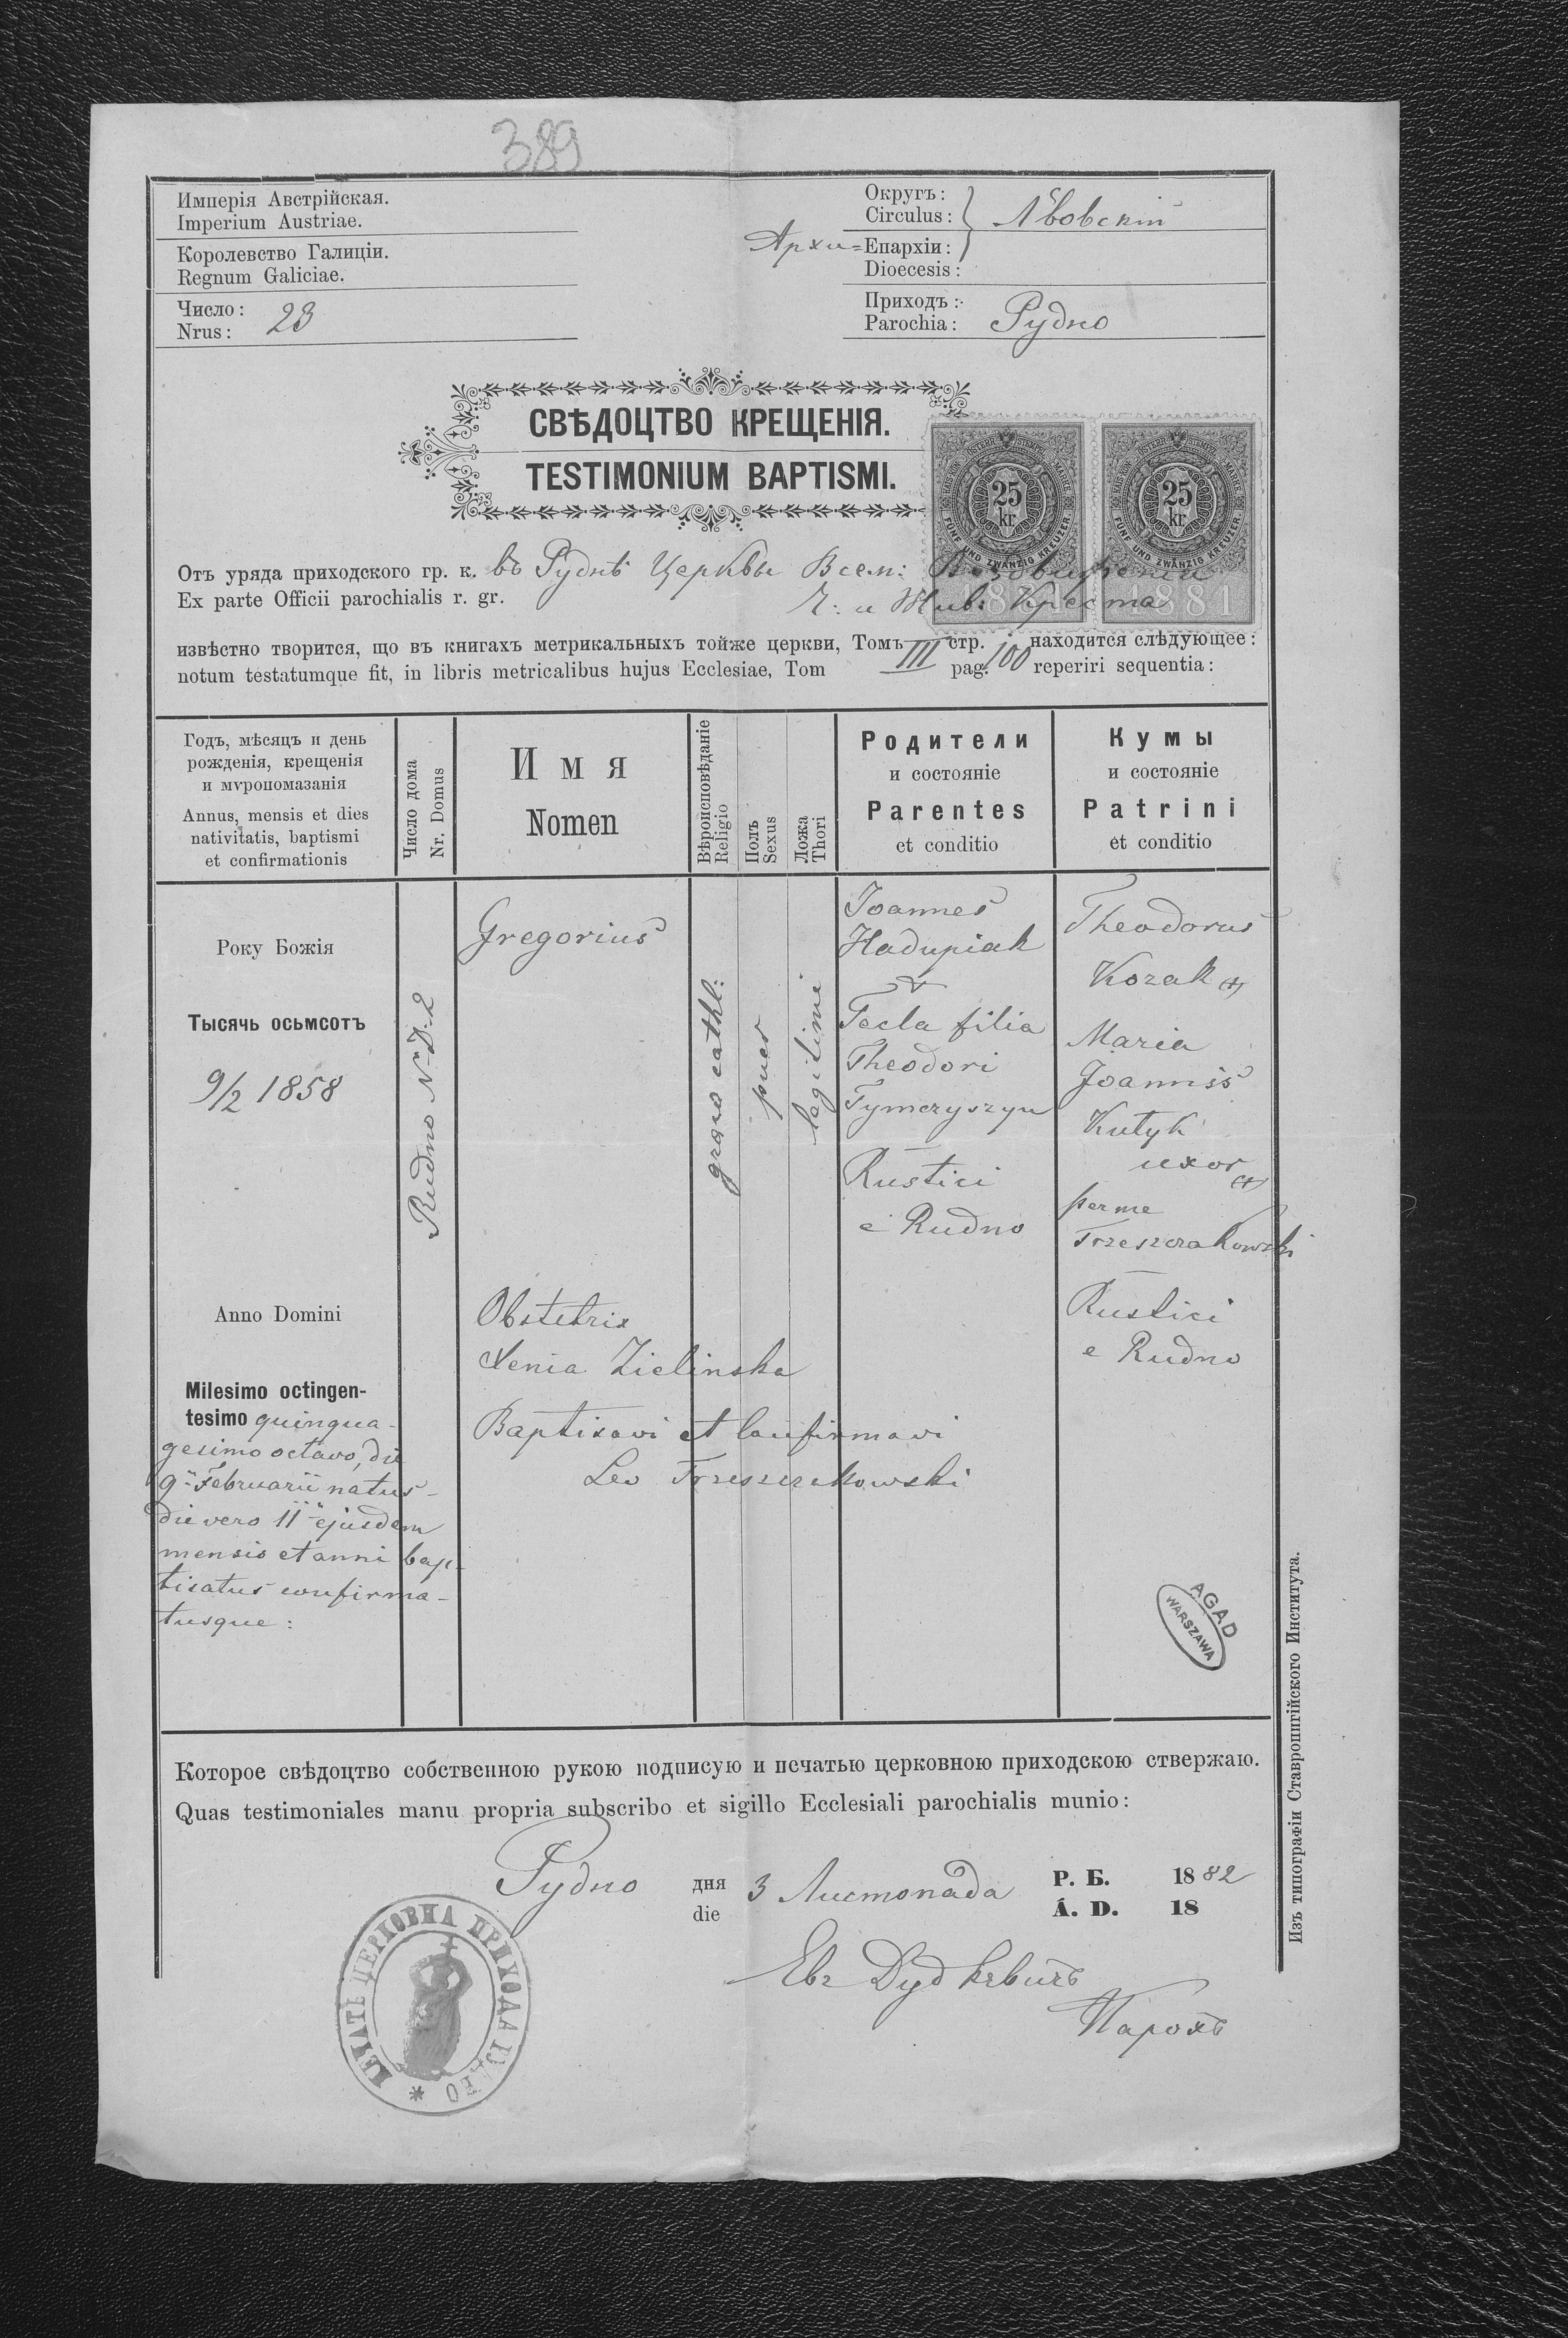 389
Имперія Австрійская.
Imperium Austriae.
Королевство Галиціи.
Regnum Galiciae.
Число:
Nrus: 23
Округъ:
Circulus: Львовскій
Архи=Епархіи:
Dioecesis:
Приходъ:
Parochia: Рудно
СВѢДОЦТВО КРЕЩЕНІЯ.
TESTIMONIUM BAPTISMI.
25 kr
FÜNF UND ZWANZIG KREUZER
1881
25 kr
FÜNF UND ZWANZIG KREUZER
1881
Отъ уряда приходского гр. к. въ Руднѣ Церквы Всем: Воздвиженія
Ex parte Officii parochialis r. gr. Ч: и Жив: Креста
извѣстно творится, що въ книгахъ метрикальныхъ тойже церкви, Томъ III стр. 100 находится слѣдующее:
notum testatumque fit, in libris metricalibus hujus Ecclesiae, Tom pag. reperiri sequentia:
Годъ, мѣсяцъ и день
рожденія, крещенія
и мѵропомазанія
Annus, mensis et dies
nativitatis, baptismi
et confirmationis
Число дома
Nr. Domus
Имя
Nomen
Вѣроисповѣданіе
Religio
Полъ
Sexus
Ложа
Thori
Родители
и состояніе
Parentes
et conditio
Кумы
и состояніе
Patrini
et conditio
Року Божія
Тысячь осьмсотъ
9/2 1858
Anno Domini
Milesimo octingen-
tesimo quinqua-
gesimo octavo, die
9" Februarii natus-
die vero 11" ejusdem
mensis et anni bap-
tisatus confirma-
tusque:
Rudno Nr D: 2
Gregorius
Obstetrix
Xenia Zielinska
Baptisavi et confirmavi
Leo Trzeszczakowski
graeco cathl:
puer
legitimi
Joannes
Hadupiak
&
Tecla filia
Theodori
Tymczyszyn
Rustici
e Rudno
Theodorus
Kozak (+)
Maria
Joannis
Kutyk
uxor (+)
per me
Trzeszczakowski
Rustici
e Rudno
AGAD
WARSZAWA
Которое свѣдоцтво собственною рукою подписую и печатью церковною приходскою ствержаю.
Quas testimoniales manu propria subscribo et sigillo Ecclesiali parochialis munio:
Рудно дня 3 Листопада Р. Б. 1882
die A. D. 18
Евг Дудкевичъ
Парохъ
ПЕЧАТЬ ЦЕРКОВНА ПРИХОДА РУДНО *
Изъ типографіи Ставропигійского Института.